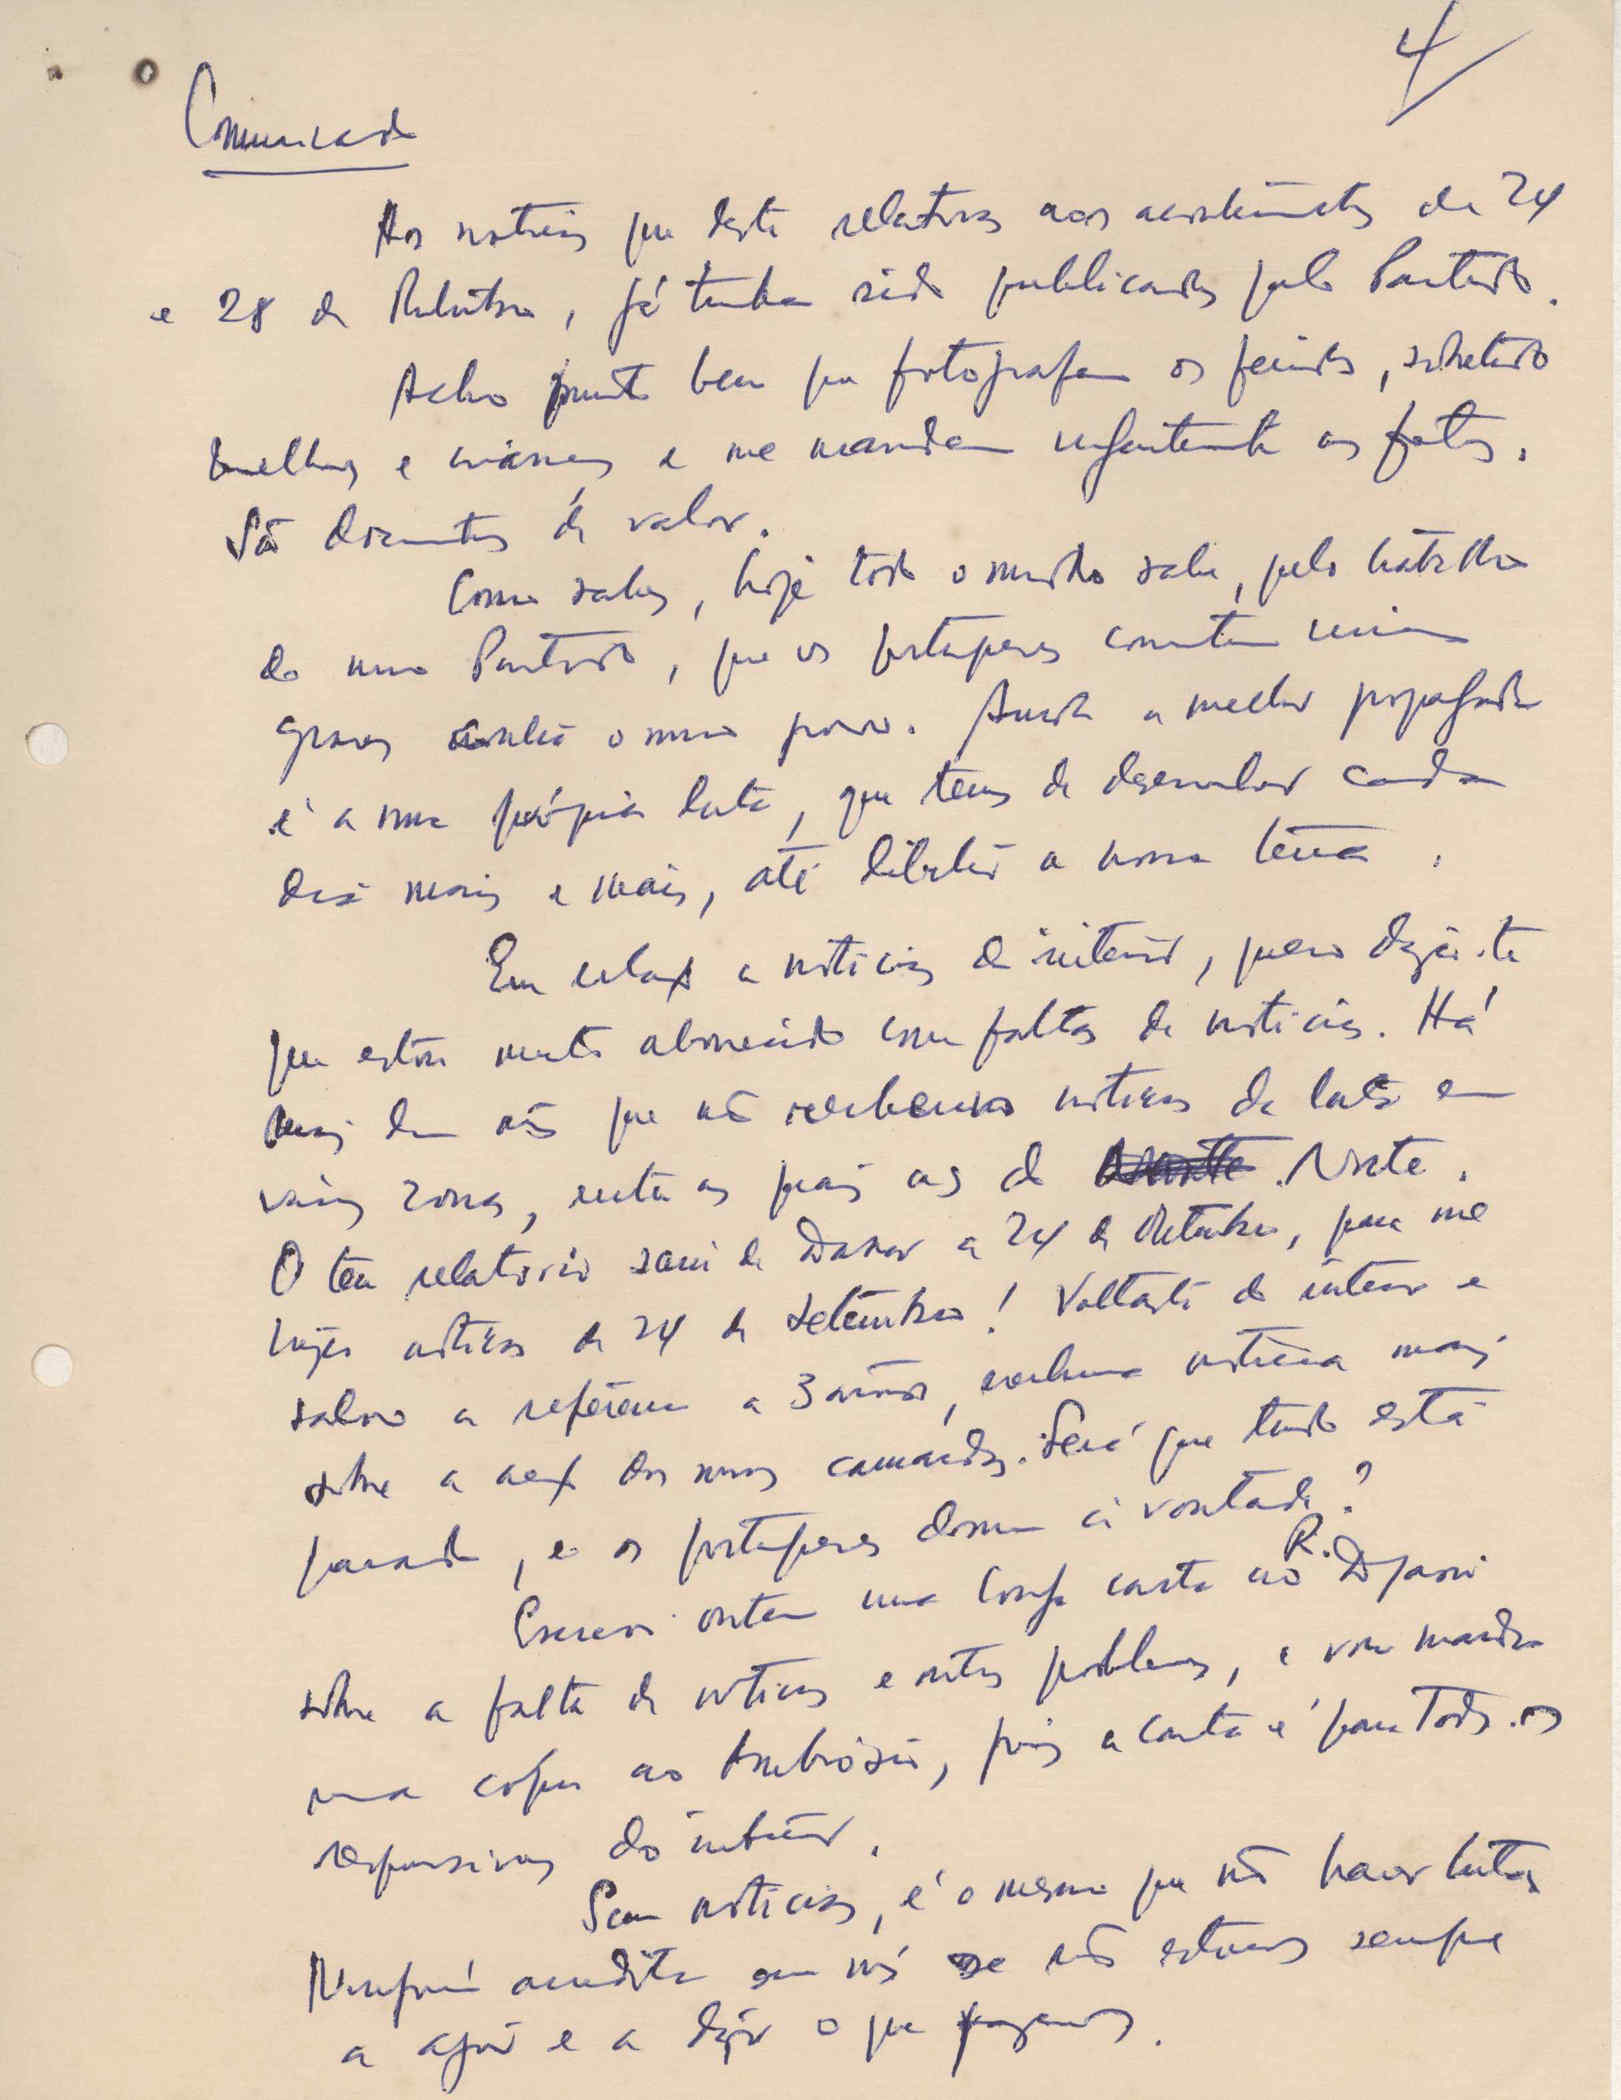 4
Comunicado
As notícias que deste relativas aos acontecimentos de 24
e 28 de Outubro, já tinham sido publicadas pelo Partido.
Acho muito bem que fotografem os feridos, sobretudo
mulheres e crianças e me mandem urgentemente as fotos.
São documentos de valor.
Como sabes, hoje todo o mundo sabe, pelo trabalho
do nosso Partido, que os portugueses cometem crimes
graves contra o nosso povo. Ainda a melhor propaganda
é a nossa própria luta, que temos de desenvolver cada
dia mais e mais, até libertar a nossa terra.
Em relação a notícias do interior, quero dizer-te
que estou muito aborrecido com faltas de notícias. Há
mais dum mês que não recebemos notícias da luta em
várias zonas, entre as quais as do Norte.
O teu relatório saiu de Dakar a 24 de Outubro, para me
trazer notícias de 24 de Setembro! Voltaste do interior e
salvo a referência a 3 acções, nenhuma notícia mais
sobre a acção dos nossos camaradas. Será que tudo está
parado, e os portugueses dormem à vontade?
Escrevi ontem uma longa carta ao R. Djassi
sobre a falta de notícias e outros problemas, e vou mandar
uma cópia ao Ambrósio, pois a carta é para todos os
responsáveis do interior.
Sem notícias, é o mesmo que não haver luta.
Ninguém acredita em nós se não estamos sempre
a agir e a dizer o que fazemos.